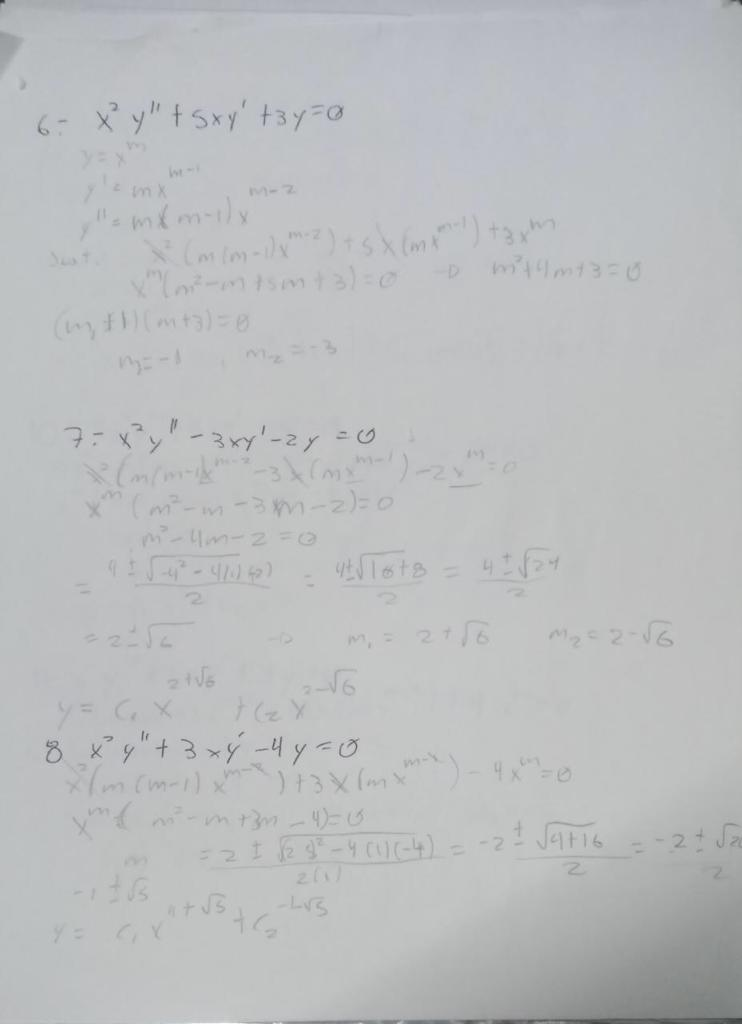 6- x² y'' + 5xy' + 3y = 0
y = x^m
y' = mx^(m-1)
y'' = m(m-1)x^(m-2)
x²(m(m-1)x^(m-2)) + 5x(mx^(m-1)) + 3x^m
x^m(m² - m + 5m + 3) = 0 → m² + 4m + 3 = 0
(m + 1)(m + 3) = 0
m₁ = -1, m₂ = -3
7- x² y'' - 3xy' - 2y = 0
x²(m(m-1)x^(m-2) - 3x(mx^(m-1)) - 2x^m = 0
x^m (m² - m - 3m - 2) = 0
m² - 4m - 2 = 0
= (4 ± √(-4² - 4(1)(-2)))/2 = (4 ± √16+8)/2 = (4 ± √24)/2
= 2 ± √6 → m₁ = 2 + √6 m₂ = 2 - √6
y = C₁ x^(2+√6) + C₂ x^(2-√6)
8 x² y'' + 3xy' - 4y = 0
x²(m(m-1) x^(m-2)) + 3x(mx^(m-1)) - 4x^m = 0
x^m ( m² - m + 3m - 4) = 0
= (2 ± √(2)² - 4(1)(-4))/2(1) = (-2 ± √(4+16))/2 = (-2 ± √20)/2
-1 ± √5
y = C₁ x^(-1+√5) + C₂^(-1-√5)